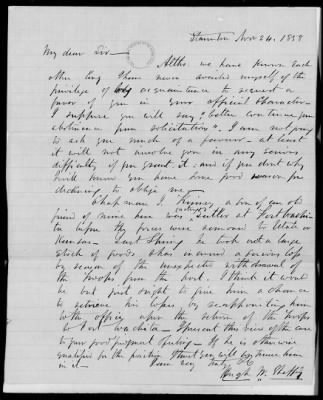 Staunton Nov 24. 1858
My dear Sir
Altho we have known each
other long I have never availed myself of the
privilege of long acquaintance to request a
favor of you in your official character.
I suppose you will say "better continue your
abstinence from solicitation". I am not going
to ask you much of a favour - at least
it will not involve you in any serious
difficulty if you grant it - and if you don't why
I will know you have some good reason for
declining to oblige me -
Chapman J. a son of an old
friend of mine here was sutler at Fort Washita
before the forces were removed to
Kansas. Last Spring he took out a large
stock of goods & has incurred a serious loss
by reason of the unexpected withdrawal of
the troops from the post. I think it would
be but just right to give him a chance
to retrieve his losses by reappointing him
to the office upon the return of the troops
to Fort Washita - I present this view of the case
to your good judgment & feeling - If he is otherwise
qualified for the position I trust you will
Very truly
Hugh W. Sheffey